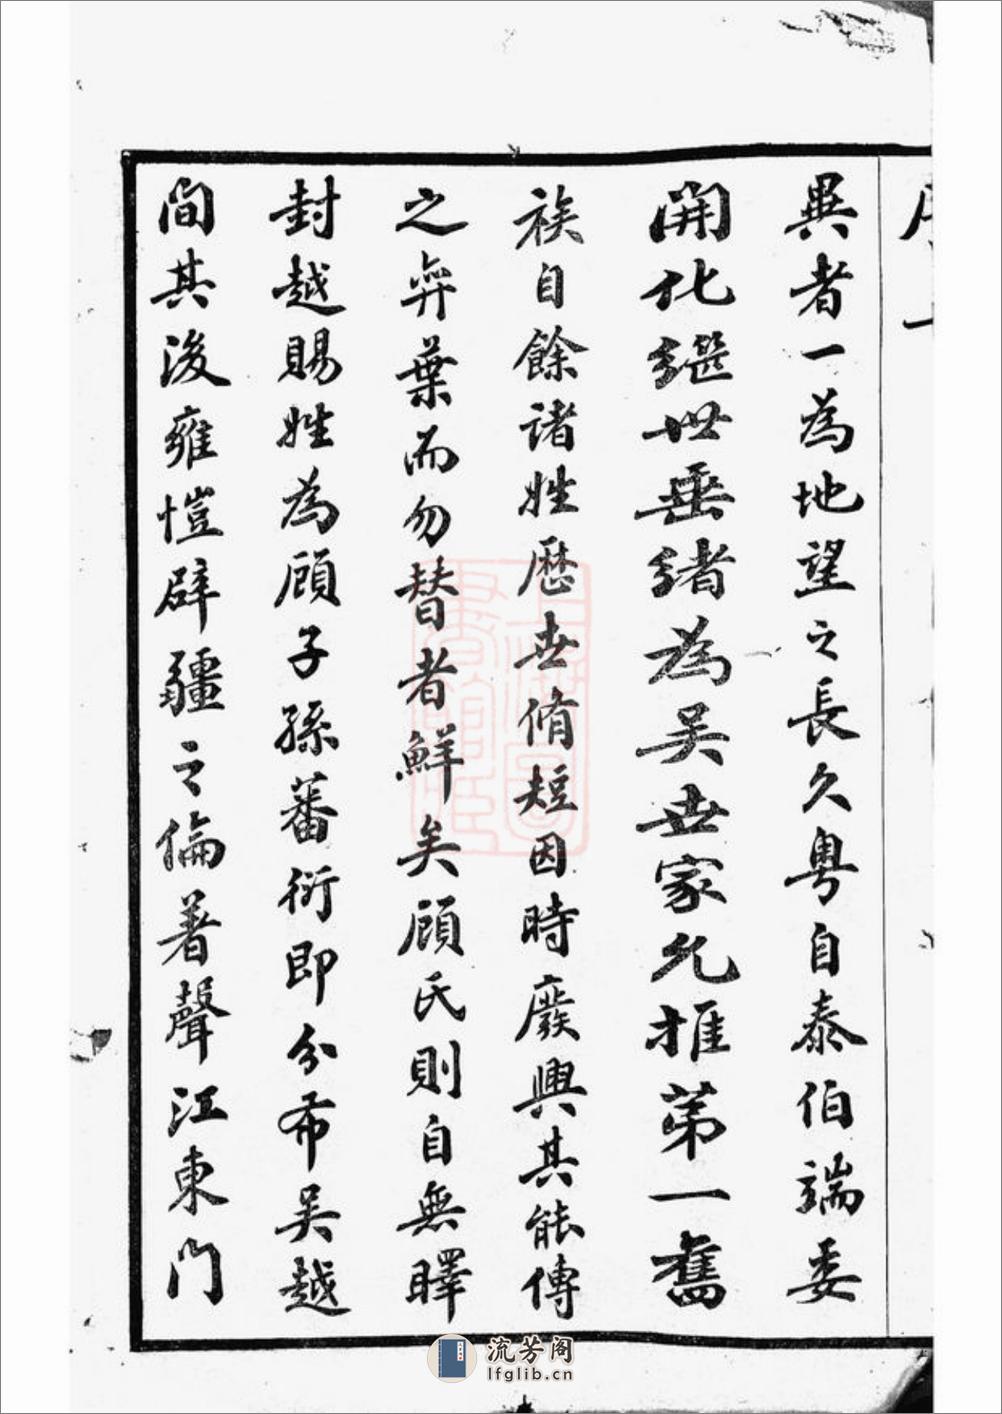 異者一為地望之長久粵自泰伯端委
開化繼世垂緒為吴世家允推第一舊
族自餘諸姓歷世脩短因時廢興其能傳
之弈葉而勿替者鮮矣顧氏則自無睪
封越賜姓為顧子孫蕃衍即分布吴越
間其後雍愷辟疆之倫著聲江東門
流芳阁
lfglib.cn